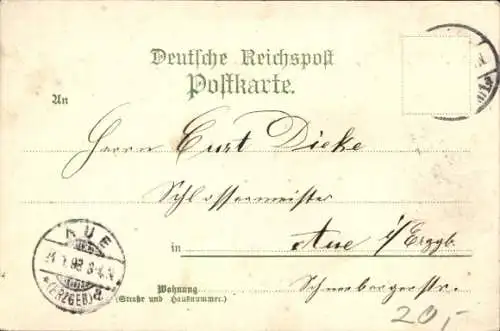 Deutsche Reichspost
Postkarte.
An
Herrn Curt Dieke
Schlossermeister
in Aue i/Erzgb.
Wohnung Schneebergerstr.
(Straße und Hausnummer.)
AUE
98
(ERZGEB)
20,-